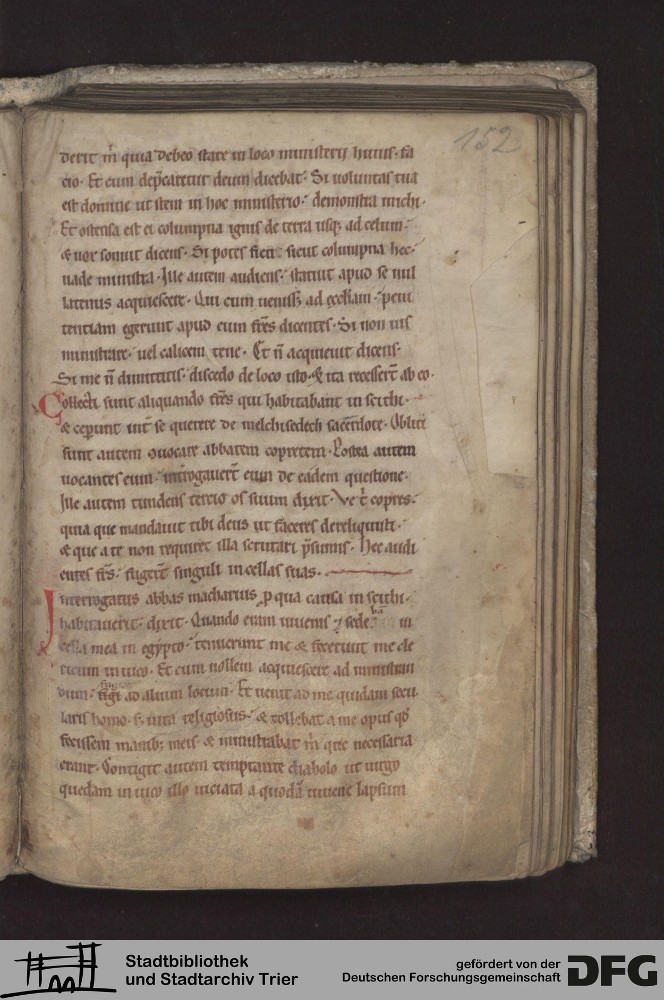 152
derit m̄ quia debeo stare in loco ministerij huius· fa
cio· Et cum dep̄caretur deum dicebat· Si uoluntas tua
est domine ut stem in hoc ministerio· demonstra michi·
Et ostensa est ei columpna ignis de terra usq; ad celum·
& uox sonuit dicens· Si potes fieri sicut columpna hec·
uade ministra· Ille autem audiens· statuit apud se nul
latenus acquiescere· Qui cum uenisset ad eccl̄iam· peni
tentiam egerunt apud eum fr̄es dicentes· Si non uis
ministrare· uel calicem tene· Et n̄ acquieuit dicens·
Si me n̄ dimittitis· discedo de loco isto· & ita recessert̄ ab eo·
Collecti sunt aliquando fr̄es qui habitabant in scithi·
& ceperunt int̄ se querere de melchisedech sacerdote· Obliti
sunt autem uocare abbatem copretem· Postea autem
uocantes eum· int̄rogauert̄ eum de eadem questione·
Ille autem tundens tercio os suum dixit· Ve t̄ copres·
quia que mandauit tibi deus ut faceres dereliquisti·
& que a te non requiret illa scrutari p̄sumis· Hec audi
entes fr̄s· fugert̄ singuli in cellas suas·
Interrogatus abbas macharius p̱ qua causa in scithi·
habitauerit· dixit· Quando eram iuuenis & sedebā in
cella mea in egypto· tenuerunt me & fecerunt me cle
ricum in uico· Et cum nollem acquiescere ad ministran
dum· fugi ad alium locum· Et uenit ad me quidam secu
laris homo· s; uita religiosus· & tollebat a me opus qd̄
fecissem manib; meis· & ministrabat m̄ que necessaria
erant· Contigit autem temptante diabolo ut uirgo
quedam in uico illo uiciata a quodā iuuene lapsum
Stadtbibliothek
und Stadtarchiv Trier
gefördert von der
Deutschen Forschungsgemeinschaft
DFG